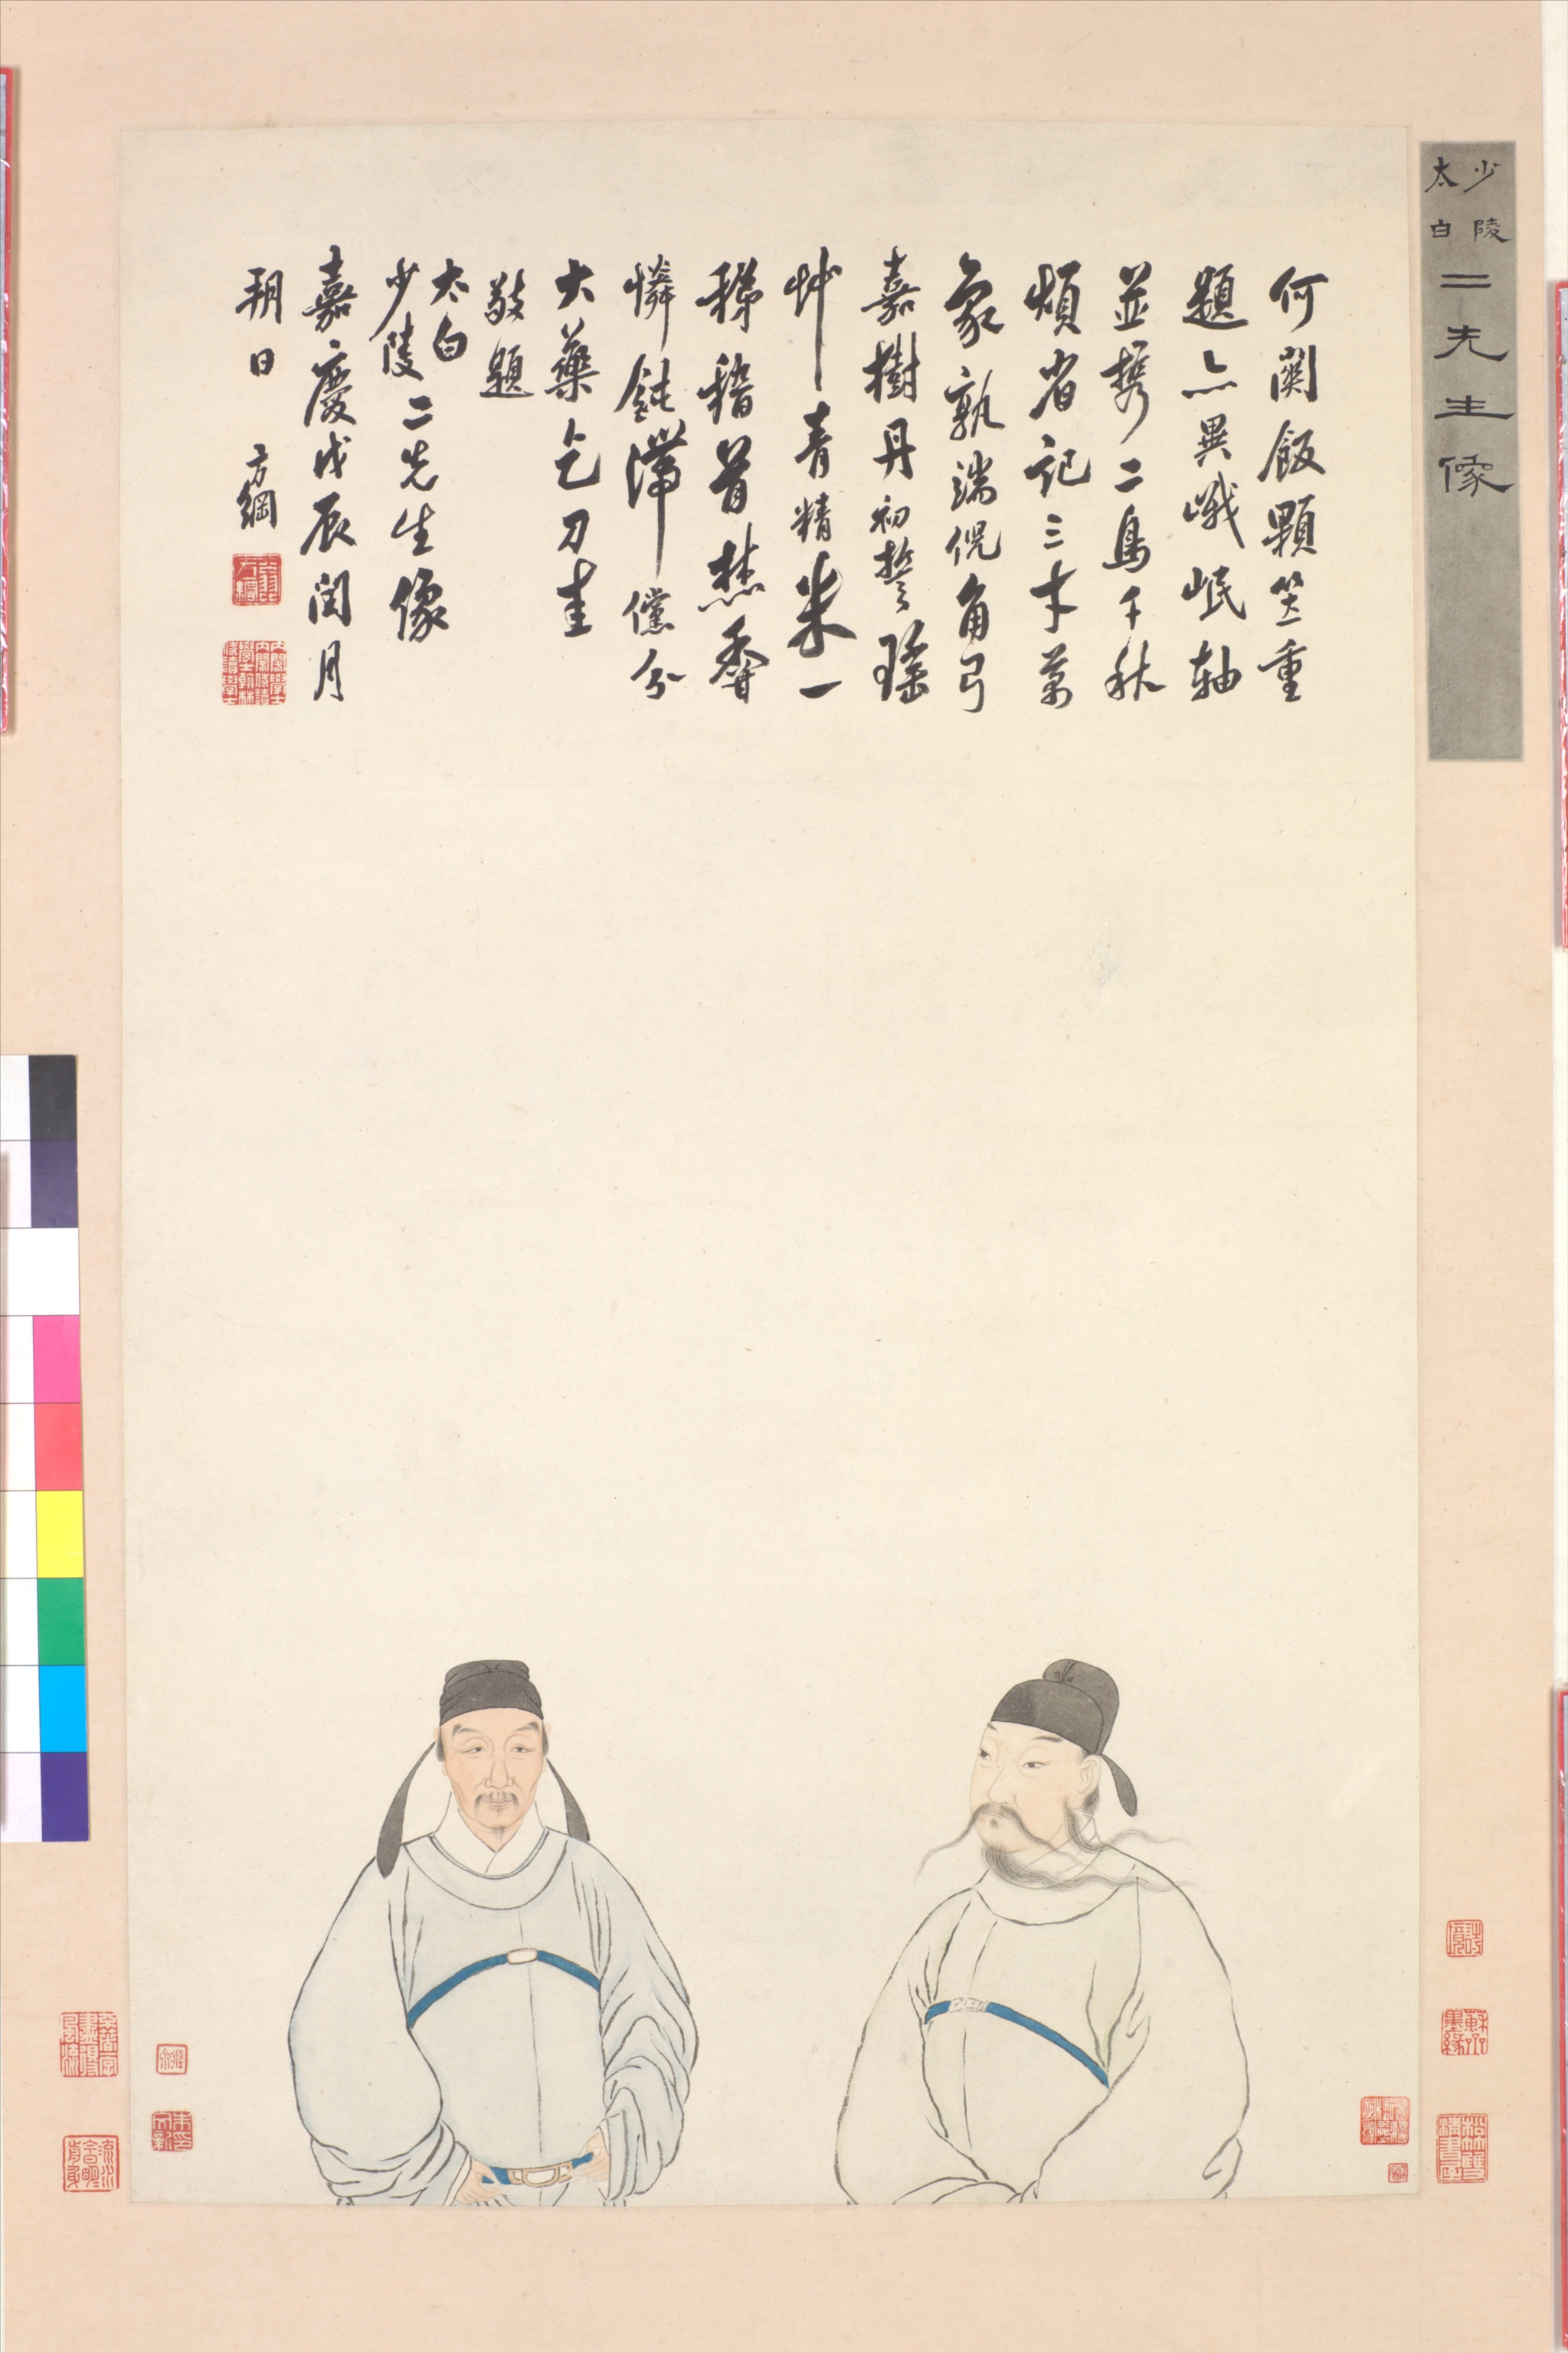 少陵
太白
二先生像
何關飯顆笠重
題亦異峨岷軸
並携二鳥千秋
煩省記三才萬
象孰端倪角弓
嘉樹丹初誓瑤
艸青精米一
稊稽首焚香
憐鈍滯儻分
大藥乞刀圭
敬題
太白
少陵二先生像
嘉慶戊辰閏月
朔日 方綱
翁方綱